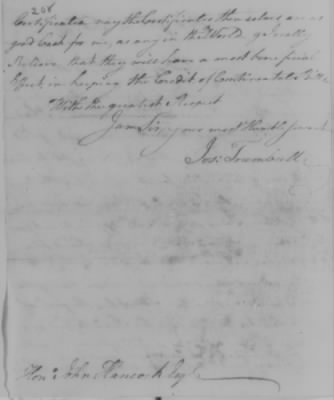 208
Certificates nay the Certificates themselves, are as
good Cash for me, as any in the World. & I really
believe that they will have a most beneficial
Effect, in keeping the Credit of Continental Bills
With the greatest Respect
I am Sir, your most Humble Servt
Jos: Trumbull
Hon: John Hancock Esqr